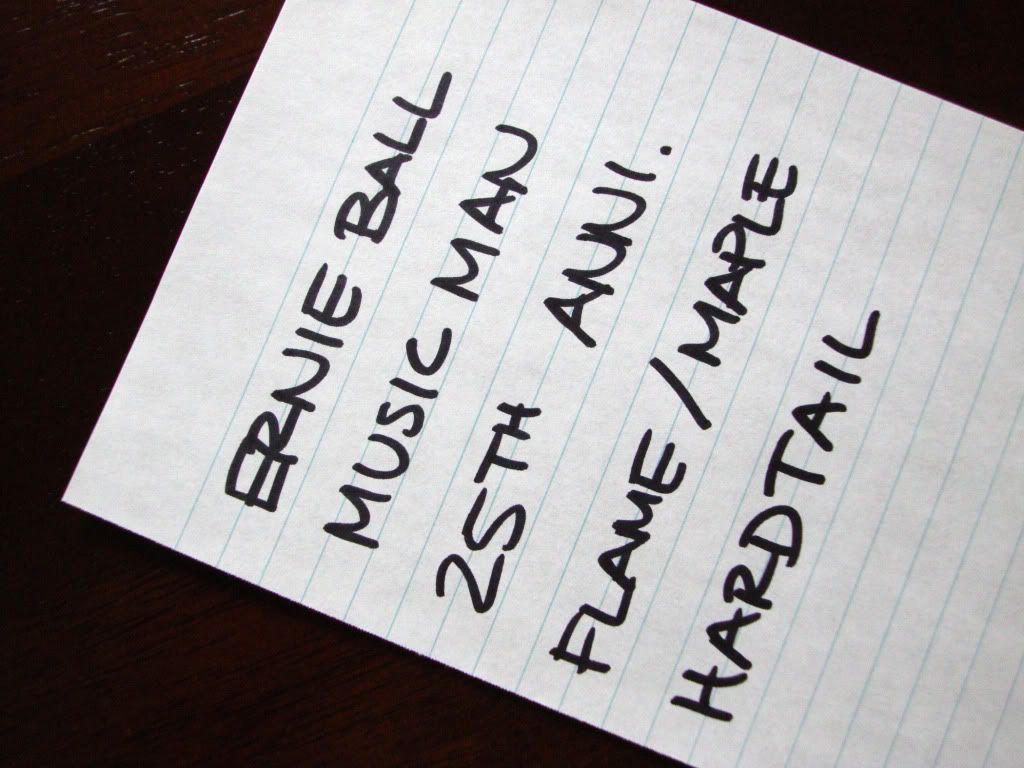 ERNIE BALL
MUSIC MAN
25TH ANNI.
FLAME/MAPLE
HARDTAIL